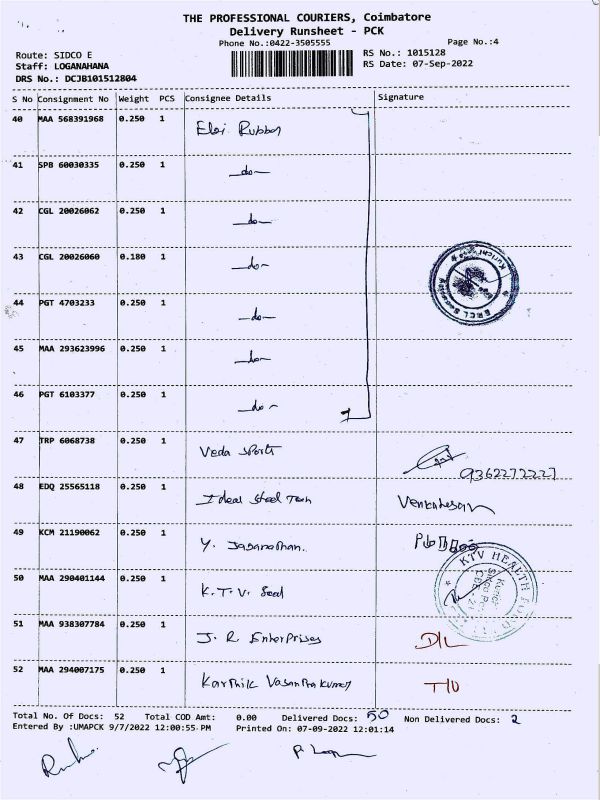 THE PROFESSIONAL COURIERS, Coimbatore
Delivery Runsheet - PCK
Phone No.:0422-3505555
Page No.:4
Route: SIDCO E
Staff: LOGANAHANA
DRS No.: DCJB101512804
RS No.: 1015128
RS Date: 07-Sep-2022
S No Consignment No Weight PCS Consignee Details Signature
40 MAA 568391968 0.250 1 Elgi Rubber
41 SPB 60030335 0.250 1 -do-
42 CGL 20026062 0.250 1 -do-
43 CGL 20026060 0.180 1 -do-
44 PGT 4703233 0.250 1 -do-
45 MAA 293623996 0.250 1 -do-
46 PGT 6103377 0.250 1 -do-
47 TRP 6068738 0.250 1 Veda Sports 9362272227
48 EDQ 25565118 0.250 1 Ideal Steel Tech Venkatesan
49 KCM 21190062 0.250 1 Y. Jaganathan.
50 MAA 290401144 0.250 1 K.T.V. Seed
KTV HEALTH FOOD
51 MAA 938307784 0.250 1 J. R Enterprises D/L
52 MAA 294007175 0.250 1 Karthik Vasanthakumar
Total No. Of Docs: 52 Total COD Amt: 0.00 Delivered Docs: 50 Non Delivered Docs: 2
Entered By :UMAPCK 9/7/2022 12:00:55 PM Printed On: 07-09-2022 12:01:14